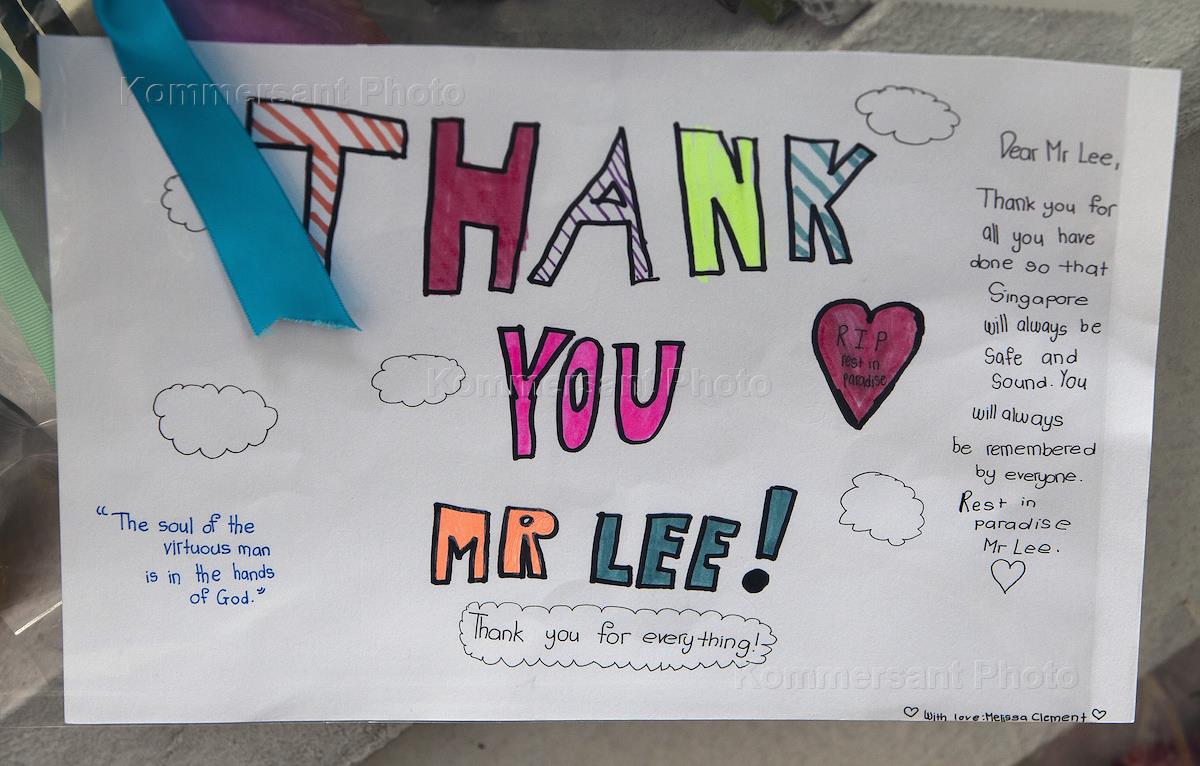 Kommersant Photo
THANK
YOU
MR LEE!
Thank you for everything!
R I P
rest in
paradise
Dear Mr Lee,
Thank you for
all you have
done so that
Singapore
will always be
Safe and
Sound. You
will always
be remembered
by everyone.
Rest in
paradise
Mr Lee.
"The soul of the
virtuous man
is in the hands
of God."
With love: Melissa Clement
Kommersant Photo
Kommersant Photo